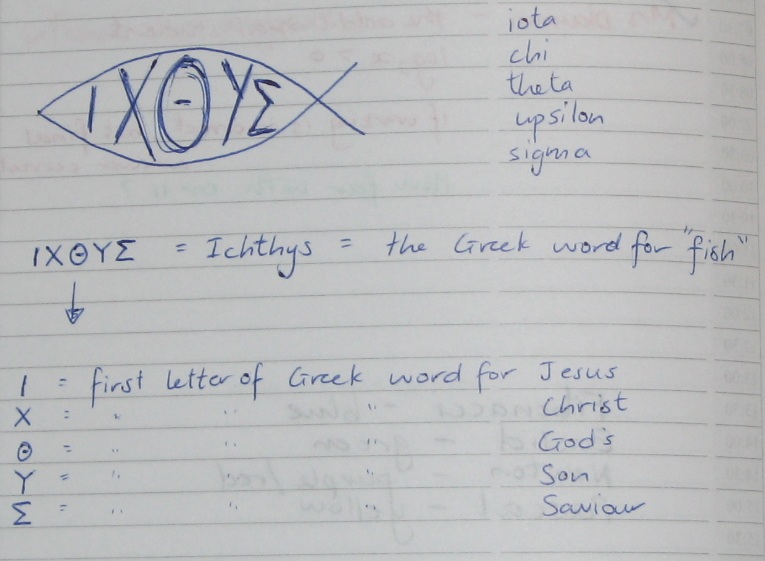 iota
chi
theta
upsilon
sigma
ΙΧΘΥΣ
ΙΧΘΥΣ = Ichthys = the Greek word for "fish"
Ι = first letter of Greek word for Jesus
Χ = " " " Christ
Θ = " " " God's
Υ = " " " Son
Σ = " " " Saviour